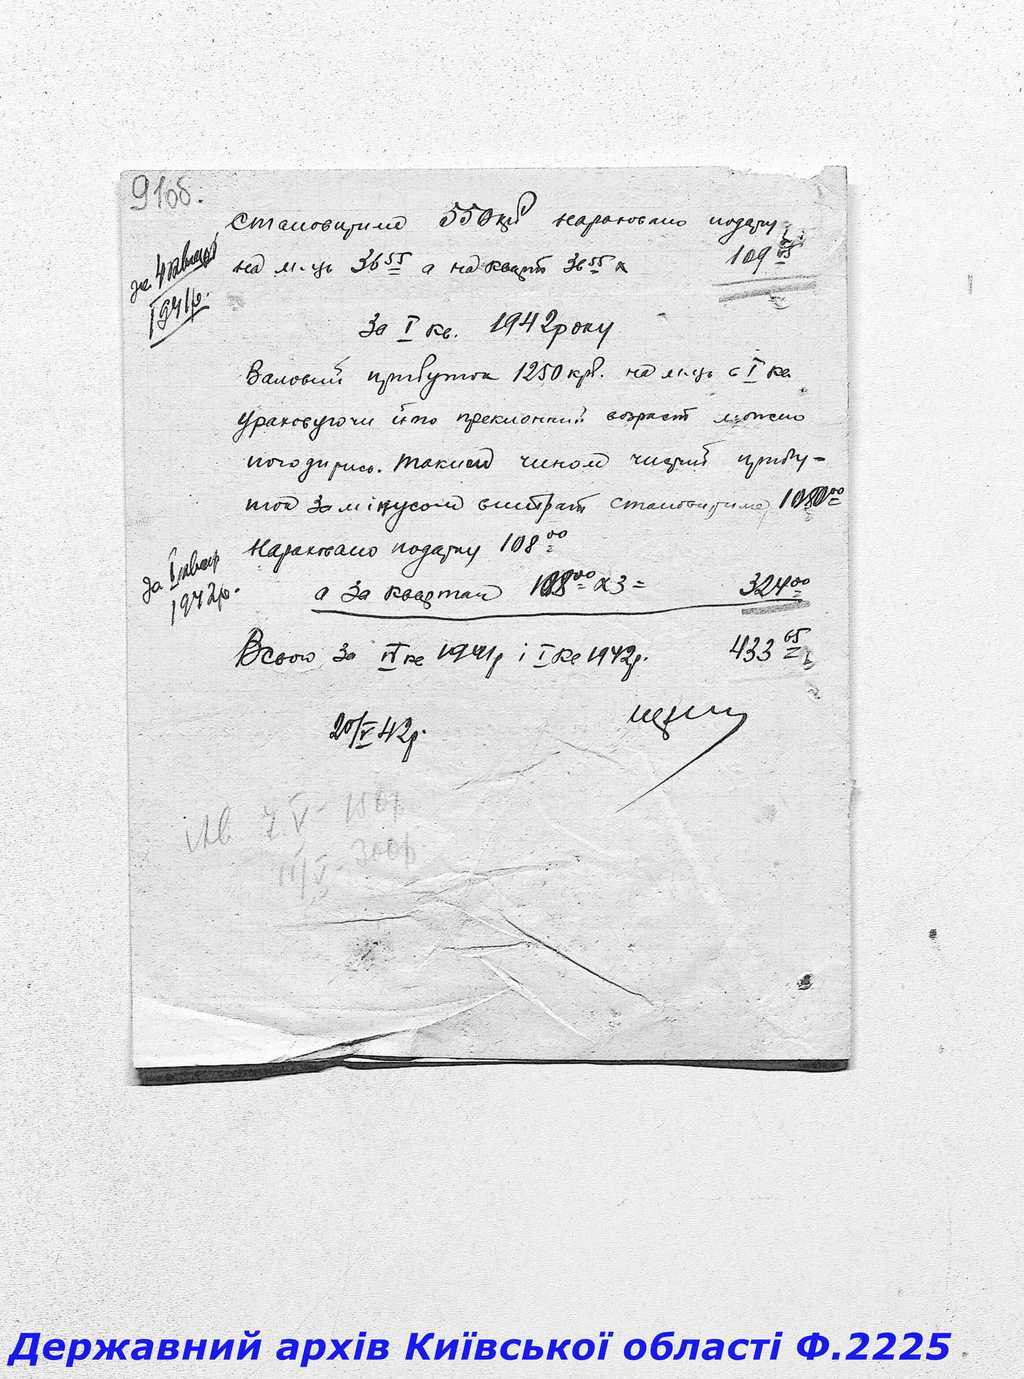 91об.
становитиме 550крб нараховано податку
за 4 квартал
1941р.
на м-ць 36 55 а на кварт 36 55 х 109 65
За I кв. 1942 року
Валовий прибуток 1250 крб. на м-ць в I кв.
Ураховуючи його преклонний возраст можно
погодитись. Таким чином чистий прибу-
ток за мінусом витрат становитиме 1080 00
Нараховано податку 108 00
за I квар
1942р.
а за квартал 108 00 х 3 = 324 00
Всього за IV кв 1941р і I кв 1942р. 433 65
20/V 42р.
Державний архів Київської області Ф.2225